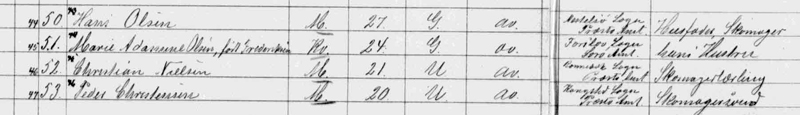 44 50. Hans Olsen M. 27. G av. Sogn Præstø Amt Husfader, Skomager
45 51. Marie Adamine Olsen, født Frederiksen Kv. 24. G av. Sogn Sorø Amt hans Hustru
46 52. Christian Nielsen M. 21. U av. Sogn Præstø Amt Skomagerlærling
47 53. Peder Christensen M. 20. U av. Kongsted Sogn Præstø Amt Skomagersvend